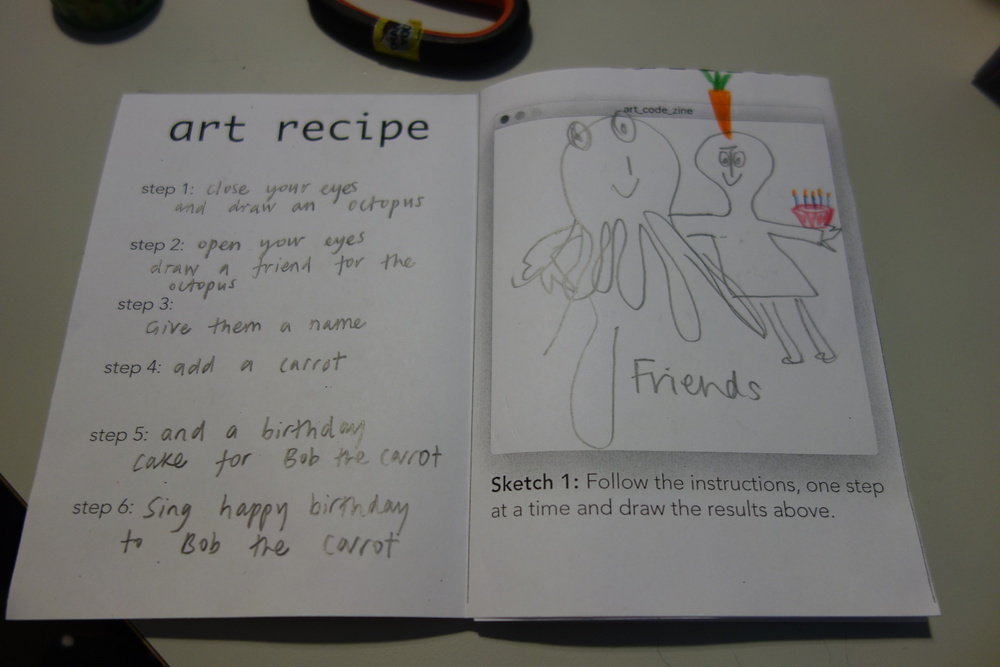 art recipe
step 1: close your eyes
and draw an octopus
step 2: open your eyes
draw a friend for the
octopus
step 3:
Give them a name
step 4: add a carrot
step 5: and a birthday
cake for Bob the carrot
step 6: Sing happy birthday
to Bob the carrot
art_code_zine
Friends
Sketch 1: Follow the instructions, one step
at a time and draw the results above.